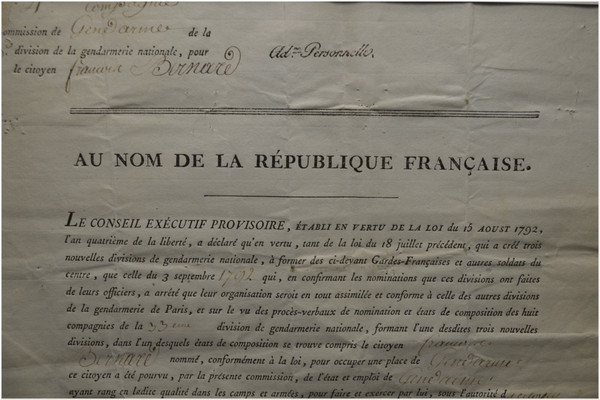 Compagnie
ommission de Gendarme de la
division de la gendarmerie nationale, pour
le citoyen françois Bernard
Adon Personnelle.
AU NOM DE LA RÉPUBLIQUE FRANÇAISE.
LE CONSEIL EXÉCUTIF PROVISOIRE, ÉTABLI EN VERTU DE LA LOI du 15 AOUST 1792,
l'an quatrième de la liberté, a déclaré qu'en vertu, tant de la loi du 18 juillet précédent, qui a créé trois
nouvelles divisions de gendarmerie nationale, à former des ci-devant Gardes-Françaises et autres soldats du
centre, que celle du 3 septembre 1792 qui, en confirmant les nominations que ces divisions ont faites
de leurs officiers, a arrêté que leur organisation seroit en tout assimilée et conforme à celle des autres divisions
de la gendarmerie de Paris, et sur le vu des procès-verbaux de nomination et états de composition des huit
compagnies de la 33eme division de gendarmerie nationale, formant l'une desdites trois nouvelles
divisions, dans l'un desquels états de composition se trouve compris le citoyen françois
Bernard nommé, conformément à la loi, pour occuper une place de Gendarme
ce citoyen a été pourvu, par la présente commission, de l'état et emploi de Gendarme
ayant rang en ladite qualité dans les camps et armées, pour faire et exercer par lui, sous l'autorité d